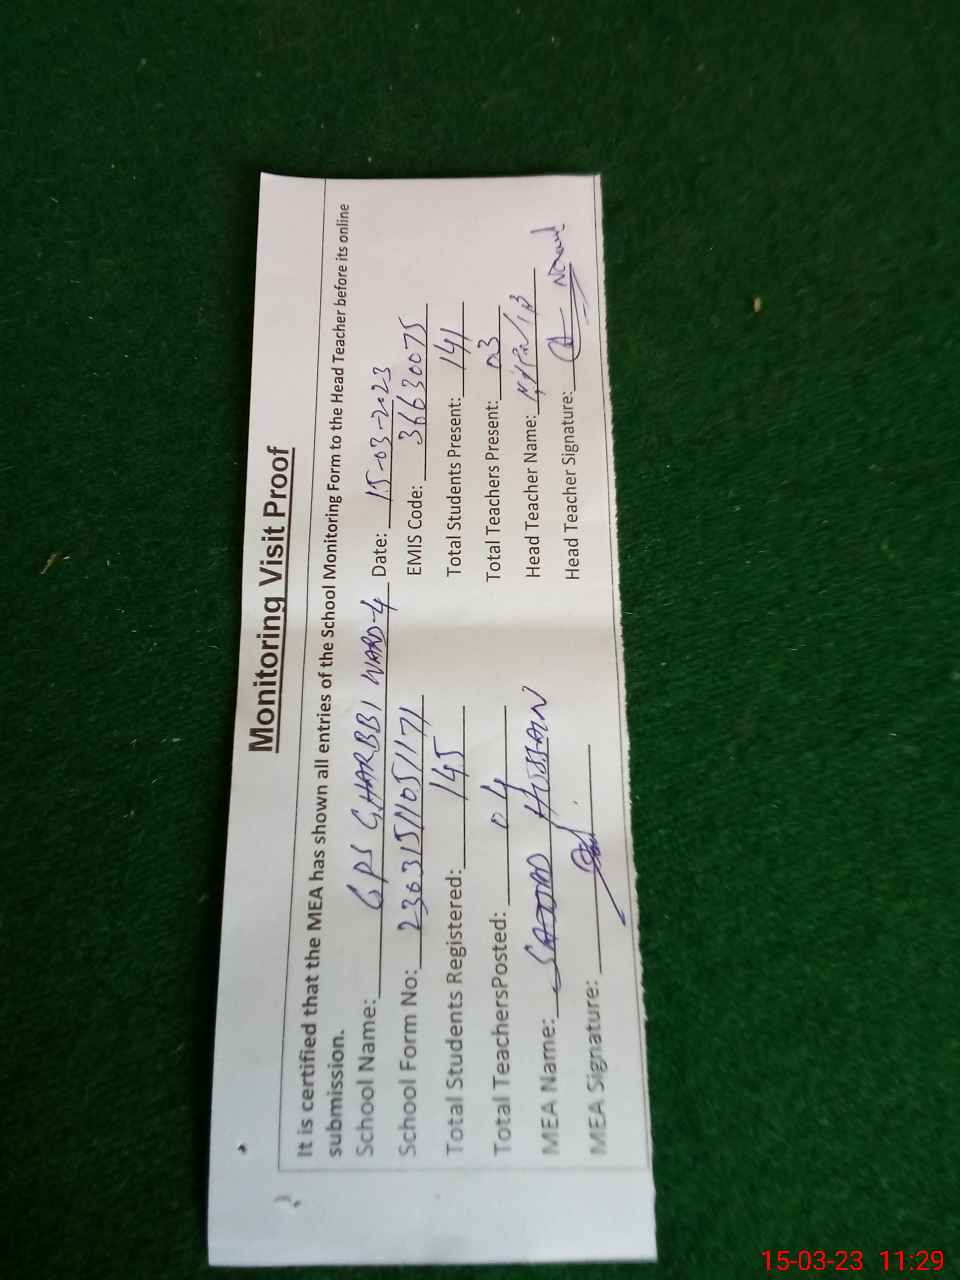 Monitoring Visit Proof
It is certified that the MEA has shown all entries of the School Monitoring Form to the Head Teacher before its online
submission.
School Name: GPS GHARBBI WARD-4 Date: 15-03-2023
School Form No: 23031511051171 EMIS Code: 36630075
Total Students Registered: 145 Total Students Present: 141
Total TeachersPosted: 04 Total Teachers Present: 03
MEA Name: SAJJAD HUSSAIN Head Teacher Name:
MEA Signature: Head Teacher Signature:
15-03-23 11:29